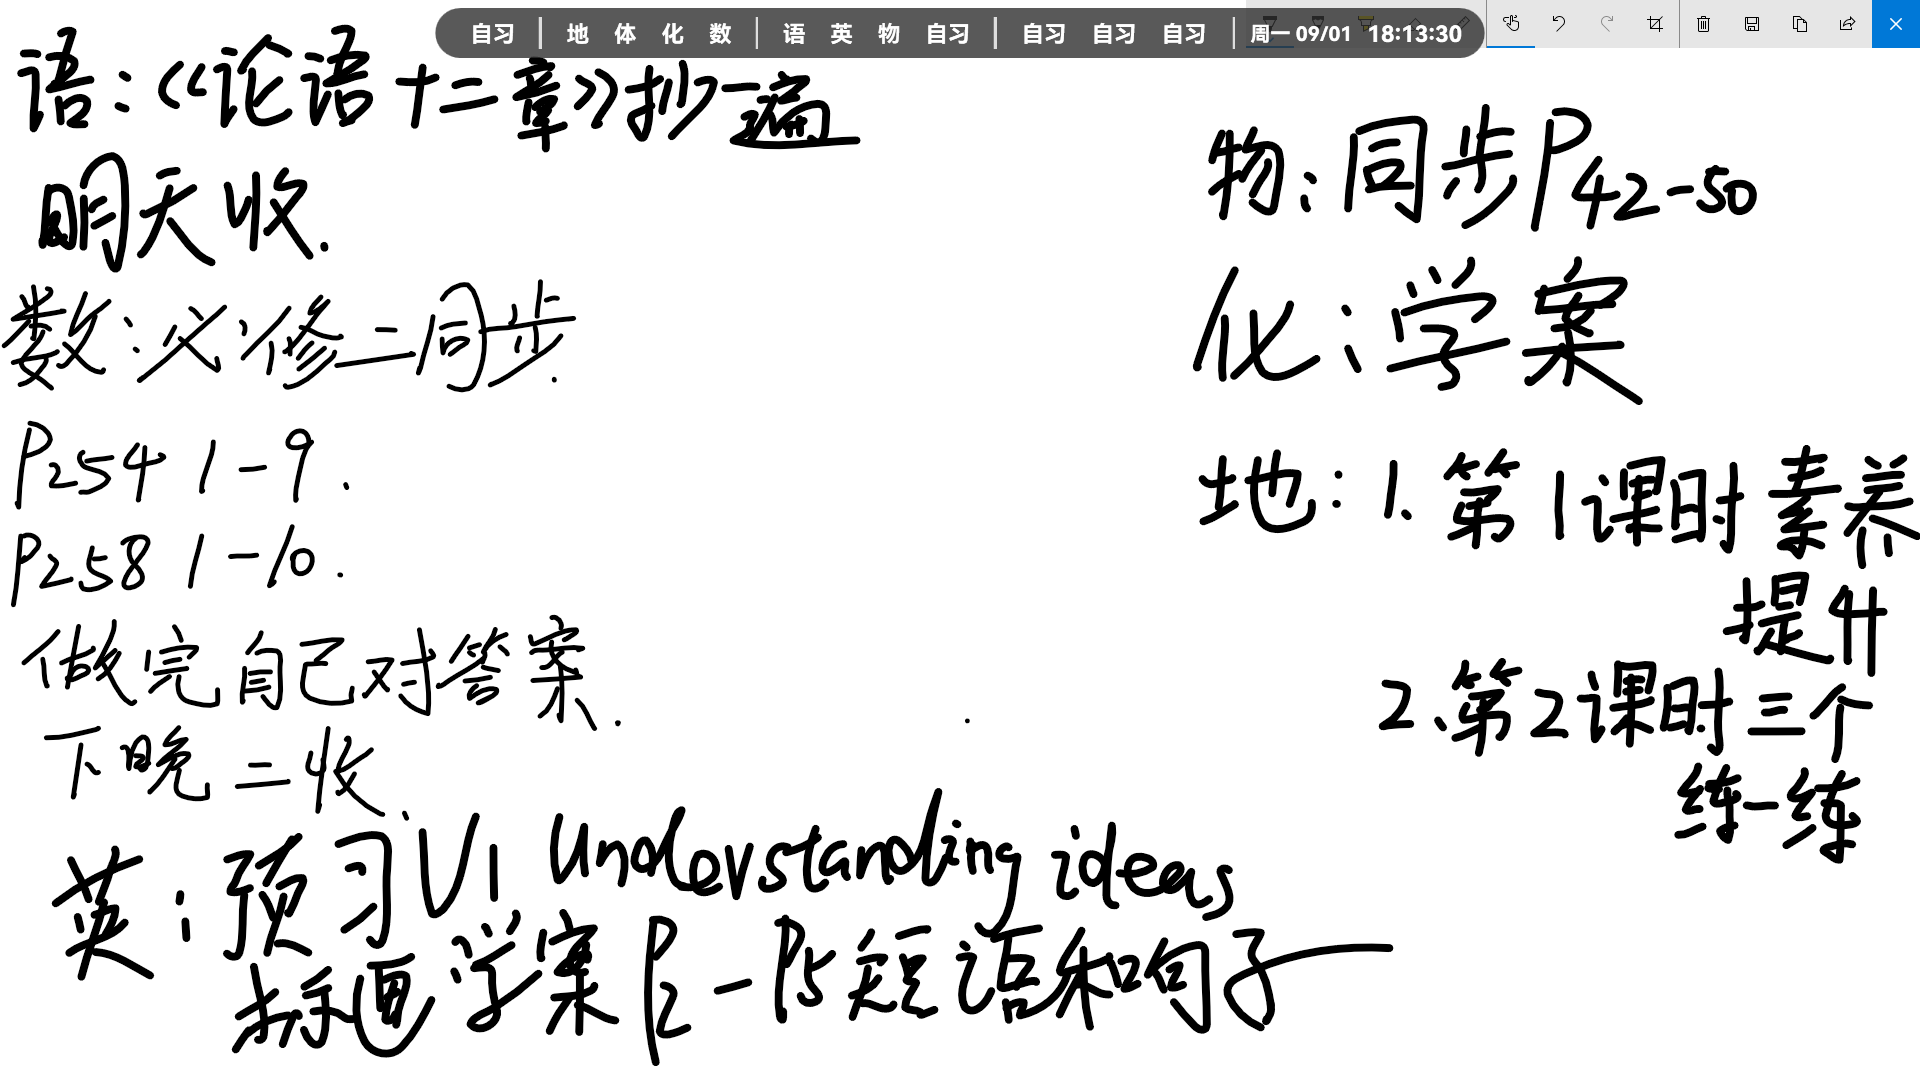 自习 | 地 体 化 数 | 语 英 物 自习 | 自习 自习 自习 | 周一 09/01 18:13:30
语：《论语十二章》抄一遍
明天收.
数：必修二同步.
P254 1-9.
P258 1-10.
做完自己对答案.
下晚二收.
英：预习U1 Understanding ideas
标画学案P2-P5短语和句子
物：同步P42-50
化：学案
地：1.第1课时素养
提升
2.第2课时三个
练一练